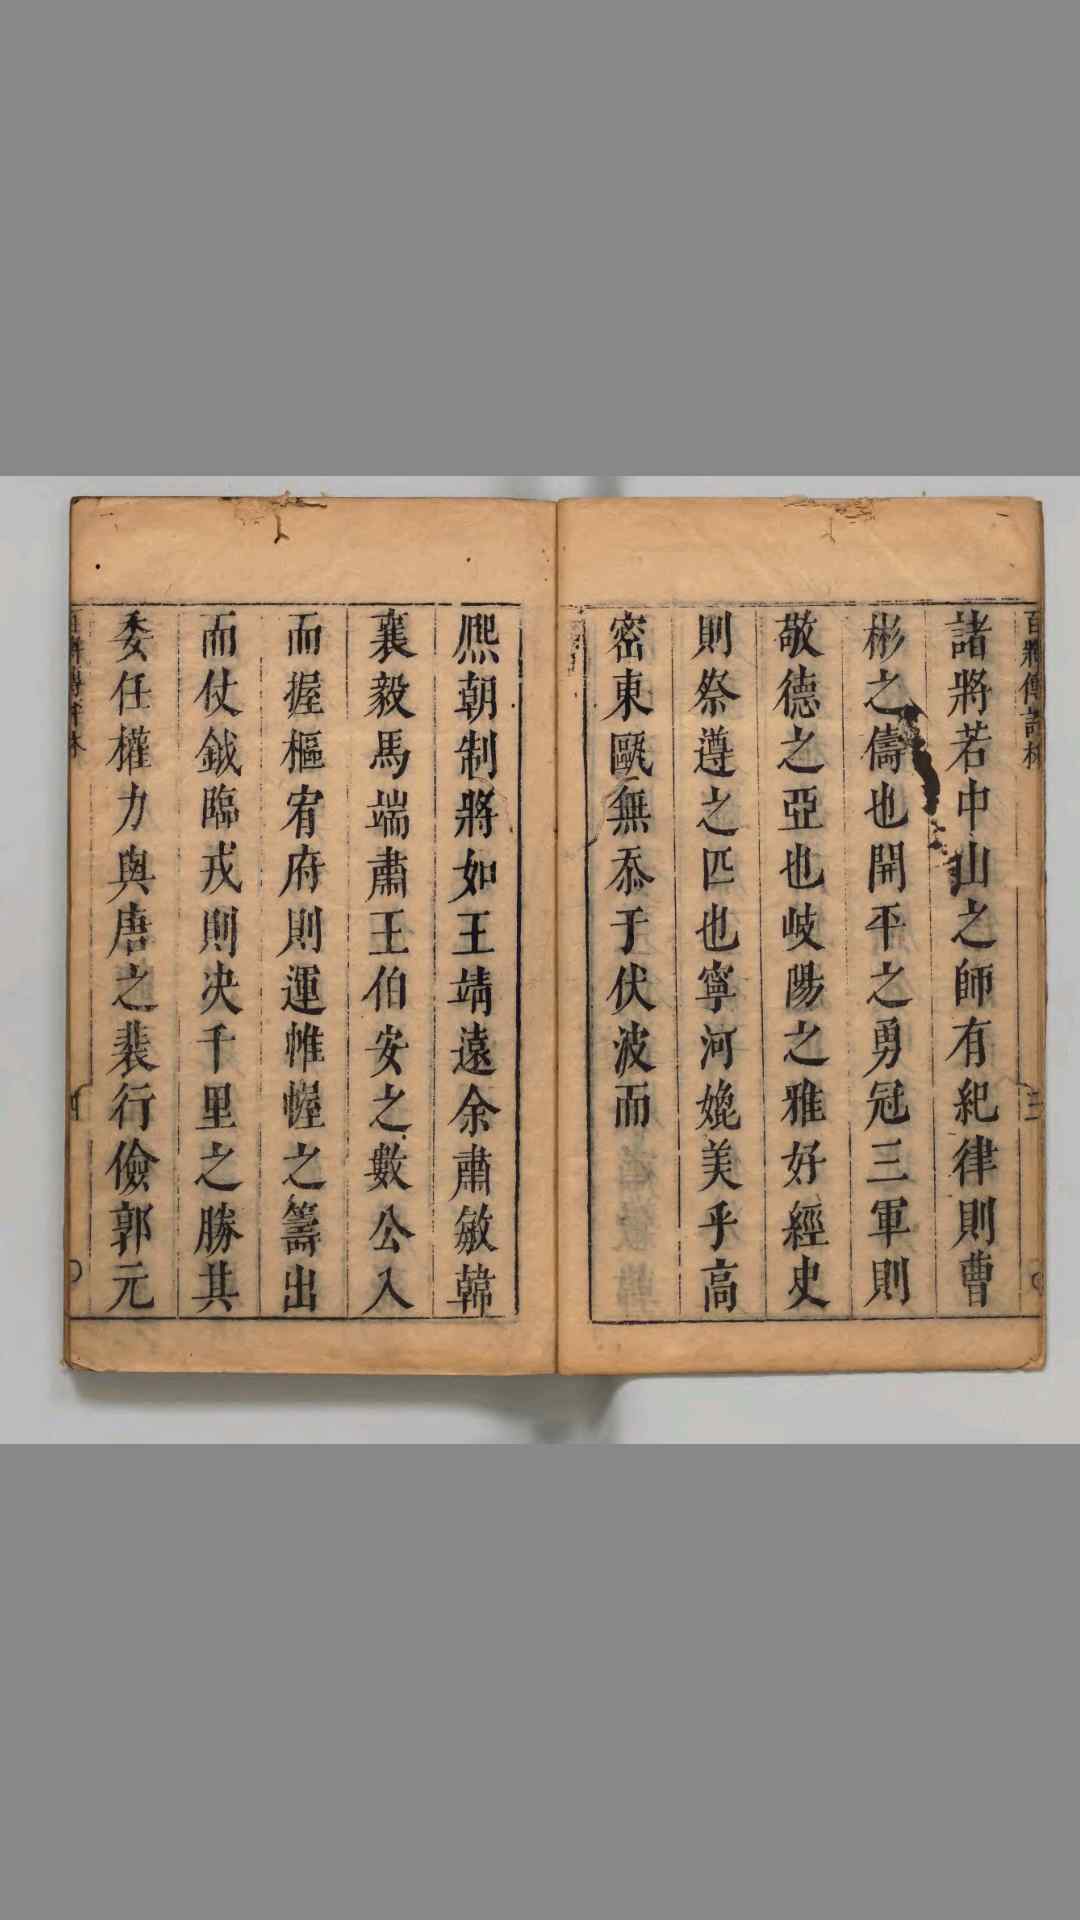 百將傳評林
諸將若中山之師有紀律則曹
彬之儔也開平之勇冠三軍則
敬德之亞也岐陽之雅好經史
則祭遵之匹也寧河媲美乎高
密東甌無忝于伏波而
熈朝制將如王靖遠余肅敏韓
襄毅馬端肅王伯安之數公入
而握樞宥府則運帷幄之籌出
而仗鉞臨戎則决千里之勝其
委任權力與唐之裴行儉郭元